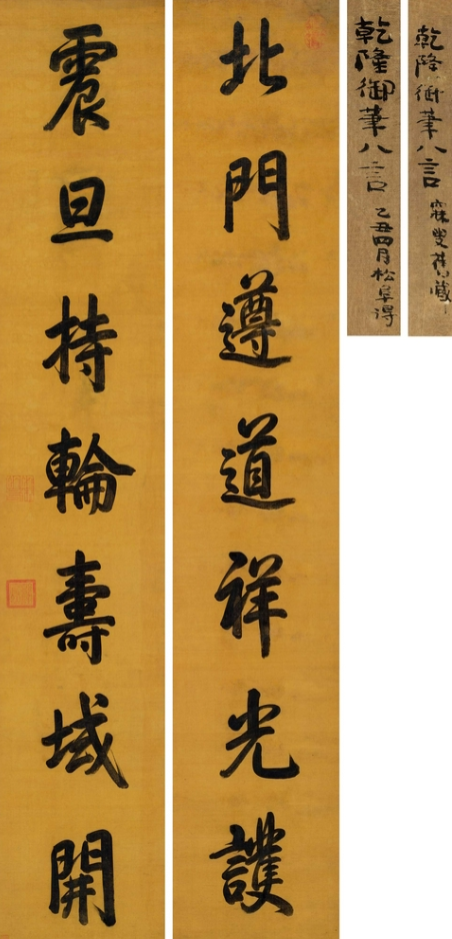 乾隆御筆八言 寐叟舊藏
乾隆御筆八言 乙丑四月松阜得
北門遵道祥光護
震旦持輪壽域開